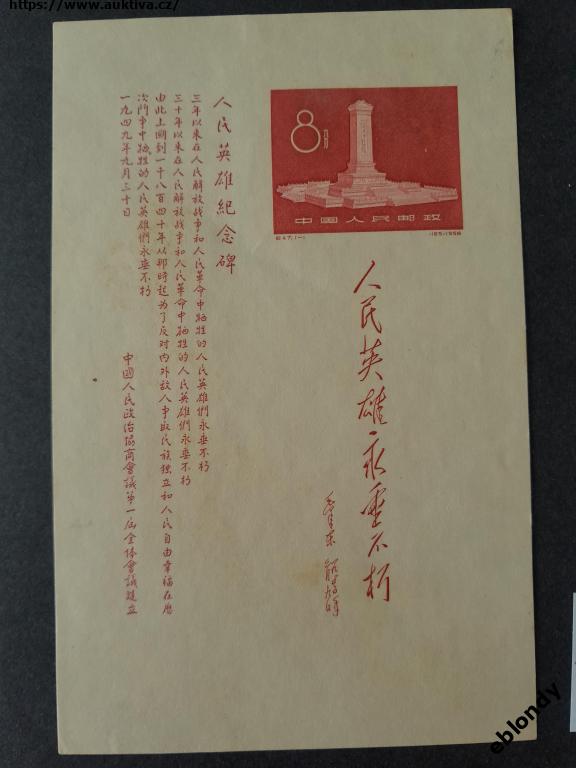 https://www.auktiva.cz/
人民英雄紀念碑
三年以来在人民解放战争和人民革命中牺牲的人民英雄們永垂不朽
三十年以来在人民解放战争和人民革命中牺牲的人民英雄們永垂不朽
由此上溯到一千八百四十年从那時起为了反对内外敌人争取民族独立和人民自由幸福在历
次鬥争中牺牲的人民英雄們永垂不朽
一九四九年九月三十日
中國人民政治協商會議第一届全体會議建立
8分
中国人民邮政
人民英雄永垂不朽
毛泽东
eblondy